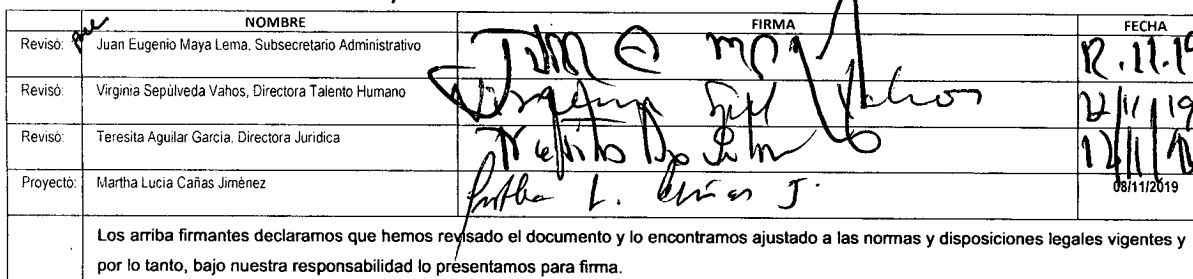 NOMBRE FIRMA FECHA
Revisó: Juan Eugenio Maya Lema, Subsecretario Administrativo 12.11.19
Revisó: Virginia Sepúlveda Vahos, Directora Talento Humano
Revisó: Teresita Aguilar García, Directora Jurídica
Proyectó: Martha Lucia Cañas Jiménez 08/11/2019
Los arriba firmantes declaramos que hemos revisado el documento y lo encontramos ajustado a las normas y disposiciones legales vigentes y
por lo tanto, bajo nuestra responsabilidad lo presentamos para firma.